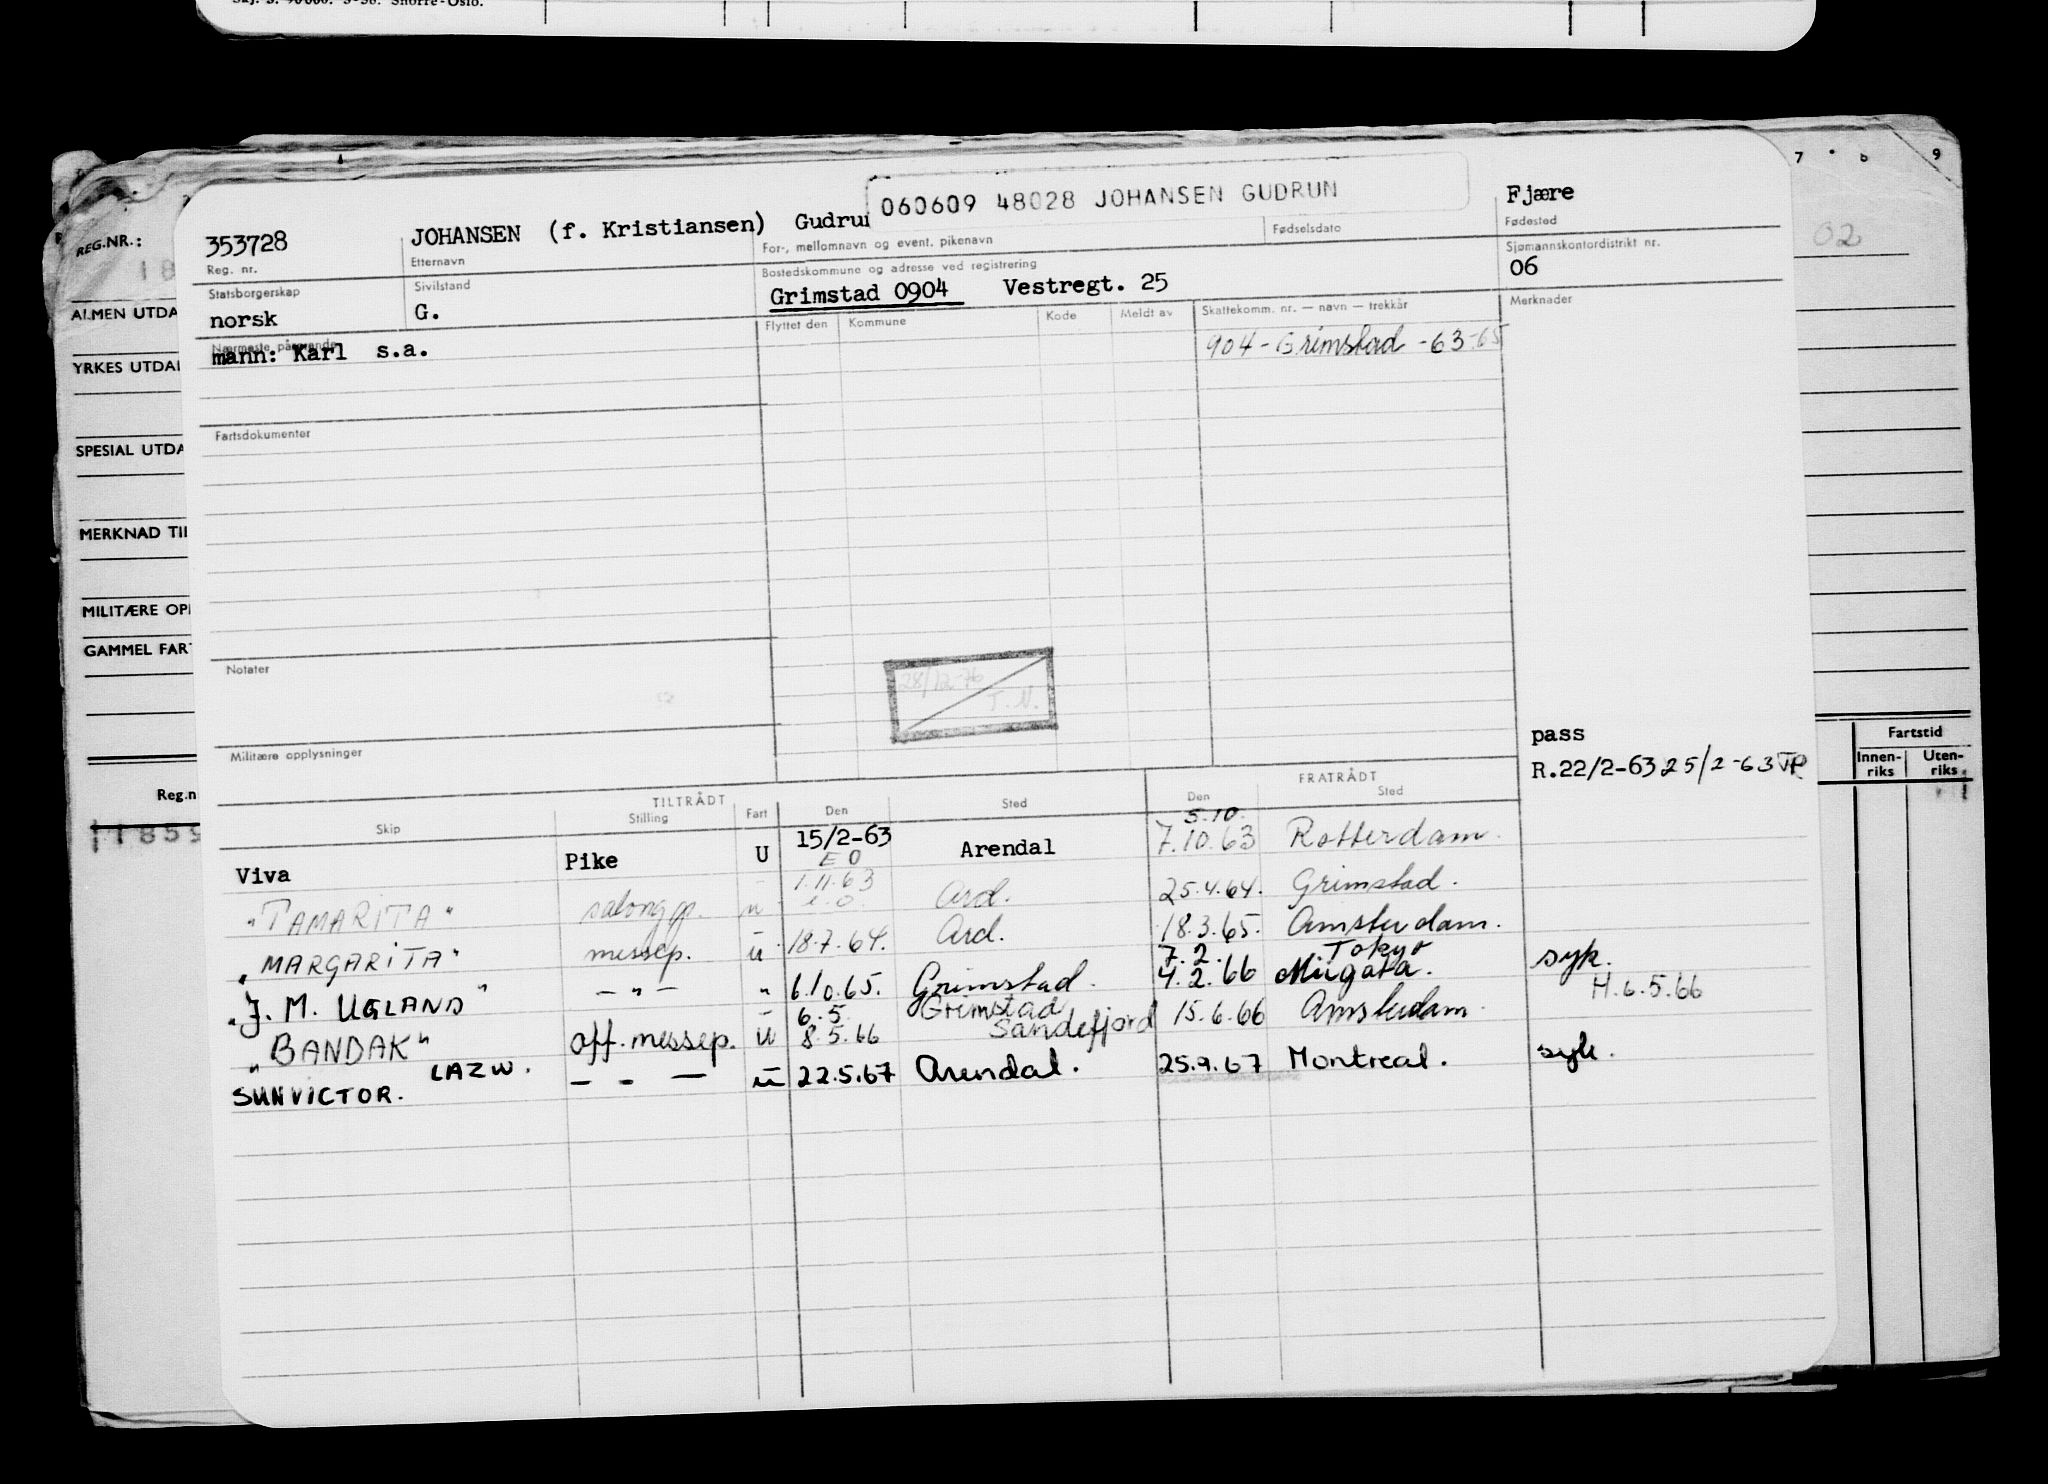 Skj. S. 90000. 3-58. Snorre-Oslo.
7 8 9
REG.NR.:
18
ALMEN UTDA
YRKES UTDA
SPESIAL UTDA
MERKNAD TIL
MILITÆRE OP
GAMMEL FAR
Reg.n
1859
02
Fartstid
Innen-riks Uten-riks
060609 48028 JOHANSEN GUDRUN
353728 JOHANSEN (f. Kristiansen) Gudrun Fjære
Reg. nr. Etternavn For-, mellomnavn og event. pikenavn Fødselsdato Fødested
Statsborgerskap Sivilstand Bostedskommune og adresse ved registrering Sjømannskontordistrikt nr.
norsk G. Grimstad 0904 Vestregt. 25 06
Nærmeste pårørende Flyttet den Kommune Kode Meldt av Skattekomm. nr. — navn — trekkår Merknader
mann: Karl s.a. 904 - Grimstad - 63-65
Fartsdokumenter
Notater
28/12-76
T.N.
Militære opplysninger
pass
R.22/2-63 25/2-63 TP
TILTRÅDT FRATRÅDT
Skip Stilling Fart Den Sted Den Sted
Viva Pike U 15/2-63 Arendal 5.10. 7.10.63 Rotterdam.
E O
"TAMARITA" salongp. u 1.11.63 Ard. 25.4.64. Grimstad.
e.o.
"MARGARITA" messep. u 18.7.64. Ard. 18.3.65. Amsterdam.
7.2. Tokyo
"J. M. UGLAND" — " — " 6.10.65. Grimstad. 4.2.66 Miigata. syk.
6.5. Grimstad H.6.5.66
"BANDAK" off. messep. u 8.5.66 Sandefjord 15.6.66 Amsterdam.
SUNVICTOR. LAZW. — - — u 22.5.67 Arendal. 25.9.67 Montreal. syk.